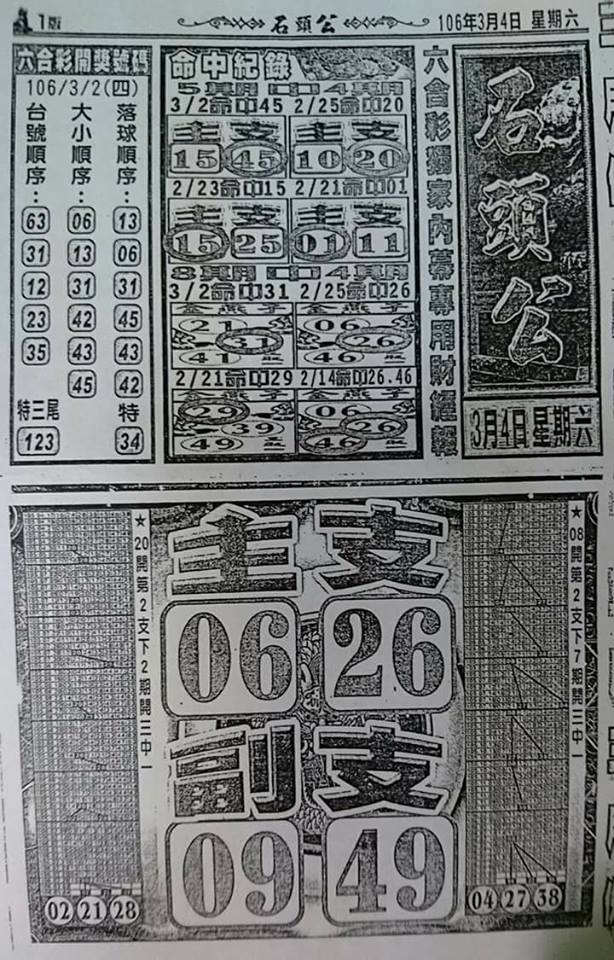 1版
石頭公
106年3月4日 星期六
六合彩開獎號碼
106/3/2(四)
台號順序：
63
31
12
23
35
特三尾
123
大小順序：
06
13
31
42
43
45
落球順序：
13
06
31
45
43
42
特
34
命中紀錄
5期中4期
3/2命中45 2/25命中20
主支 主支
15 45 10 20
2/23命中15 2/21命中01
主支 主支
15 25 01 11
8期中4期
3/2命中31 2/25命中26
金燕子 金燕子
21 06
31 26
41 46
2/21命中29 2/14命中26.46
金燕子 金燕子
29 06
39 26
49 46
六合彩獨家內幕專用財經報
石頭公
3月4日 星期六
★20開第2支下2期開三中一
02 21 28
主支
06 26
副支
09 49
★08開第2支下7期開三中一
04 27 38